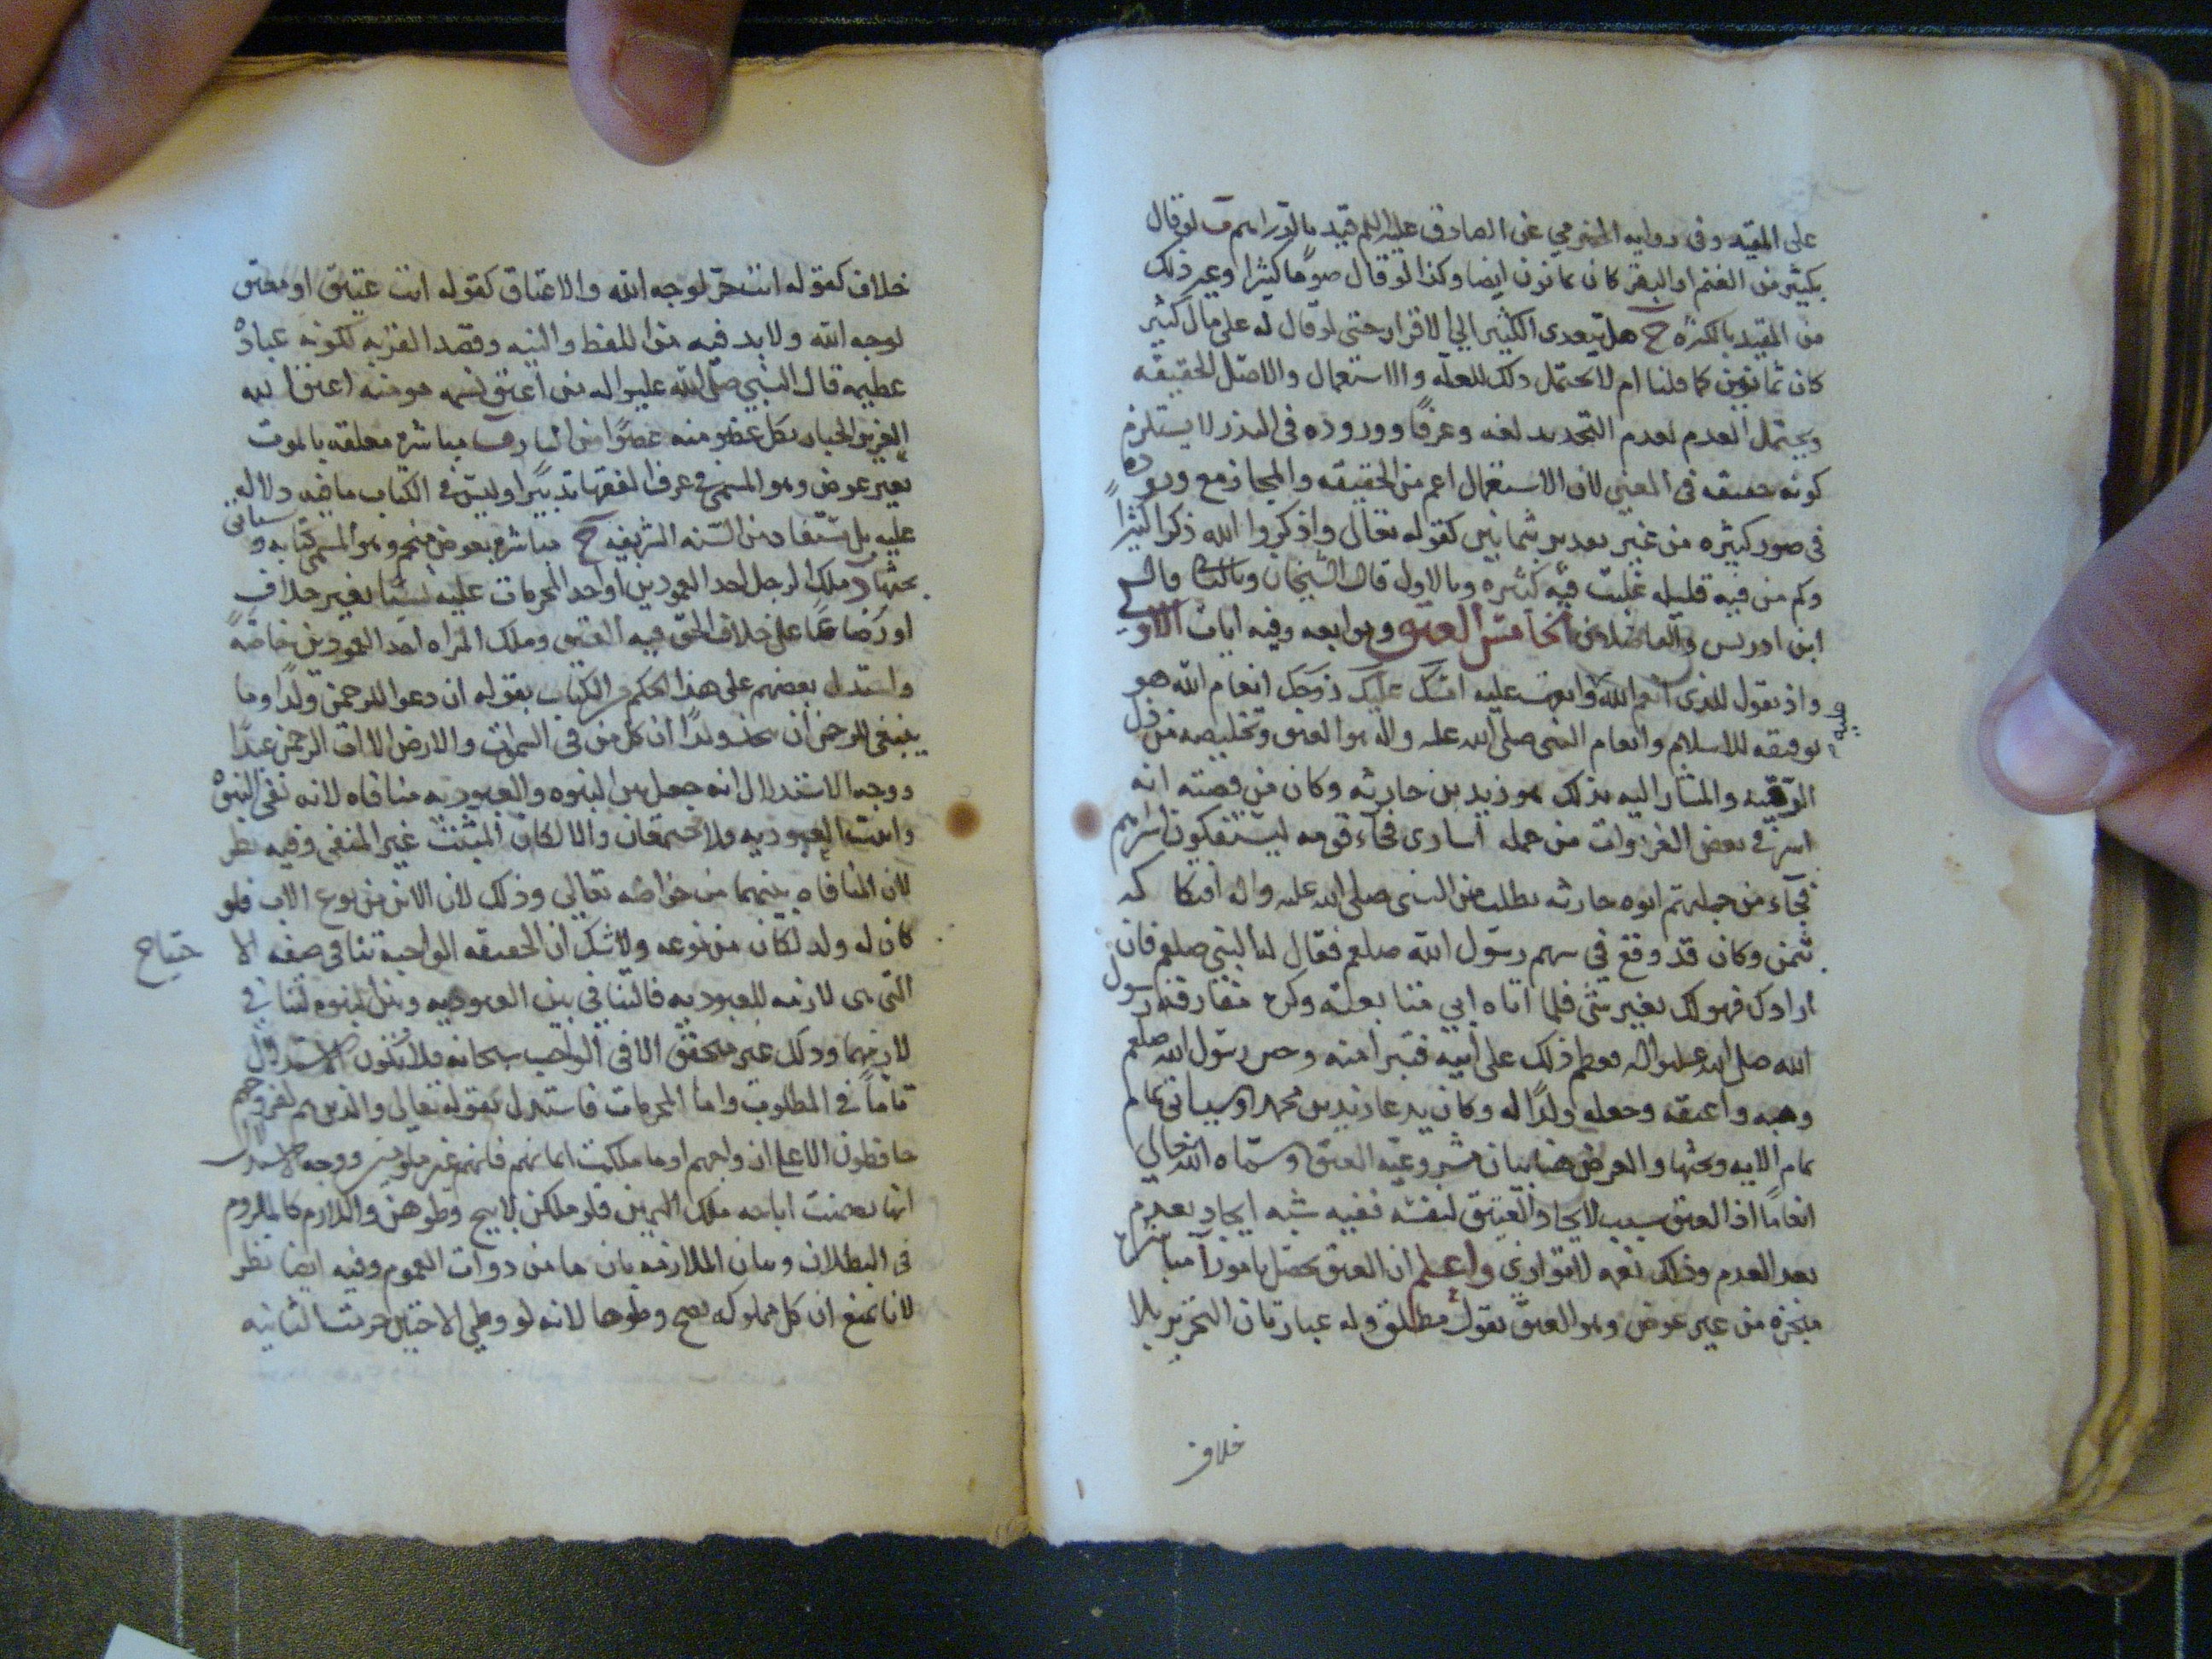 على المقيد وفى رواية الحضرمي عن الصادق عليه السلم قيد بالدراهم ب لو قال
بكثير من الغنم او البقر كان ثمانون ايضا وكذا لو قال صوما كثيرا وغير ذلك
من المقيد بالكثره ج هل يتعدى الكثير الى الاقرار حتى لو قال له على مال كثير
كان ثمانين كما قلنا ام لا يحتمل ذلك للعلة والاستعمال والاصل الحقيقه
ويحتمل العدم لعدم التحديد لغه وعرفا ووروده فى النذر لا يستلزم
كونه حقيقه فى المعنى لان الاستعمال اعم من الحقيقه والمجاز مع وروده
فى صور كثيره من غير تقدير بثمانين كقوله تعالى واذكروا الله ذكرا كثيرا
وكم من فئه قليله غلبت فئة كثيره وبالاول قال الشيخان وبالثانى قال
ابن ادريس والفاضلان الخامس العتق وتوابعه وفيه ايات الاولى
واذ تقول للذى انعم الله عليه وانعمت عليه امسك عليك زوجك انعام الله هو
توفيقه للاسلام وانعام النبى صلى الله عليه واله هو العتق وتخليصه من ذل
الرقية والمشار اليه بذلك هو زيد بن حارثه وكان من قصته انه
اسر فى بعض الغزوات من جمله اسارى فجاء قومه ليستفكون اسراهم
فجاء من جملتهم ابوه حارثه يطلب من النبى صلى الله عليه واله افتكاكه
بثمن وكان قد وقع فى سهم رسول الله صلعم فقال له النبى صلعم فان
ارادك فهو لك بغير شئ فلما اتاه ابى متابعته وكره مفارقة رسول
الله صلى الله عليه واله فعظم ذلك على ابيه فتبرا منه رسول الله صلعم
وهبه واعتقه وجعله ولدا له وكان يدعا زيد بن محمد وسياتى تمام
تمام الايه وبحثها والغرض هنا بيان مشروعيه العتق وسماه الله تعالى
انعاما اذ العتق سبب لايجاد العتيق لنفسه ففيه شبه ايجاد بعدم
بعد العدم وذلك نعمه لا توازى واعلم ان العتق يحصل بامور ا مباشرة
منجزه من غير عوض وهو العتق بقول مطلق وله عبارتان التحرير بلا
خلاف
خلاف كقوله انت حر لوجه الله والاعتاق كقوله انت عتيق او معتق
لوجه الله ولابد فيه من اللفظ والنيه وقصد القربه لكونه عبادة
عظيمه قال النبى صلى الله عليه واله من اعتق نسمه مومنه اعتق الله
العزيز الجبار بكل عضو منه عضوا من النار ب مباشره معلقه بالموت
بغير عوض وهو المسمى فى عرف الفقها تدبيرا وليس فى الكتاب ما فيه دلاله
عليه بل تستفاد من السنه الشريفه ج مباشره بعوض منجم وهو المسمى كتابه وسياتى
بحثها د ملك الرجل احد العمودين او احد المحرمات عليه نسبا بغير خلاف
او رضاعا على خلاف الحق فيه العتق وملك المراه احد العمودين خاصة
واستدل بعضهم على هذا الحكم من الكتاب بقوله ان دعوا للرحمن ولدا وما
ينبغى للرحمن ان يتخذ ولدا ان كل من فى السموات والارض الا ات الرحمن عبدا
ووجه الاستدلال انه جعل بين البنوه والعبوديه منافاه لانه نفى البنوة
واثبت العبوديه ولا يجتمعان والا لكان المثبت غير المنفى وفيه نظر
لان المنافاه بينهما من خواصه تعالى وذلك لان الابن من نوع الاب فلو
كان له ولد لكان من نوعه ولا شك ان الحقيقه الواجبة تنافى صفه الا حتياج
التى هى لازمه للعبوديه فالتنافى بين العبوديه وبين البنوه لتنافى
لازمهما وذلك غير متحقق الا فى الواجب سبحانه فلا يكون الاستدلال
تاما فى المطلوب واما المحرمات فاستدل بقوله تعالى والذين هم لفروجهم
حافظون الا على ازواجهم او ما ملكت ايمانهم فانهم غير ملومين ووجه الاستدلال
انها تضمنت اباحه ملك اليمين فلو ملكن لابيح وطوهن واللازم كالملزوم
فى البطلان وبيان الملازمه بان ما من دوات العموم وفيه ايضا نظر
لانا نمنع ان كل مملوكه يصح وطوها لانه لو وطى الاختين حرمت الثانيه